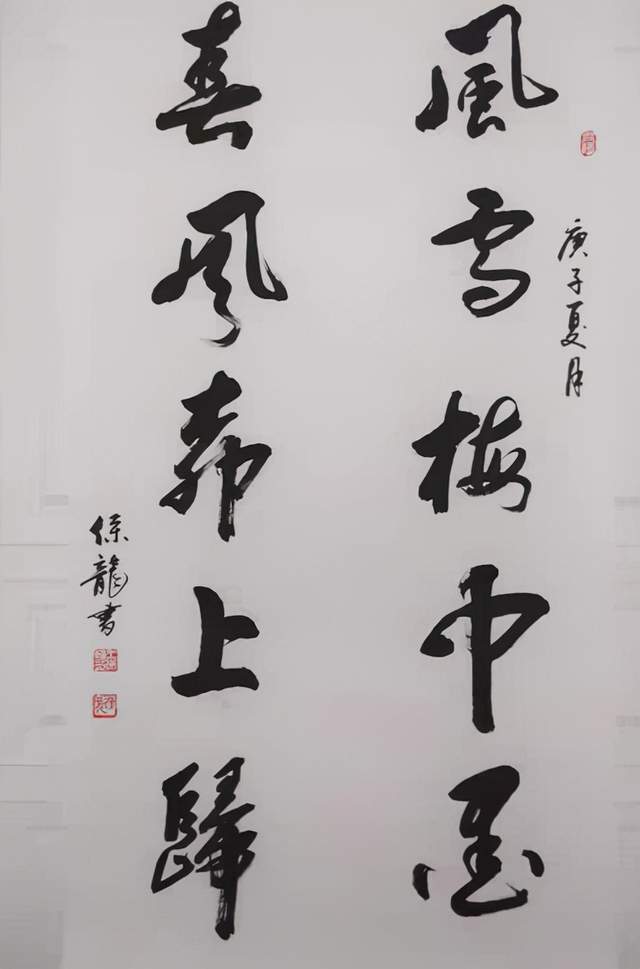 庚子夏月
風雪梅中盡
春風柳上歸
保龍書